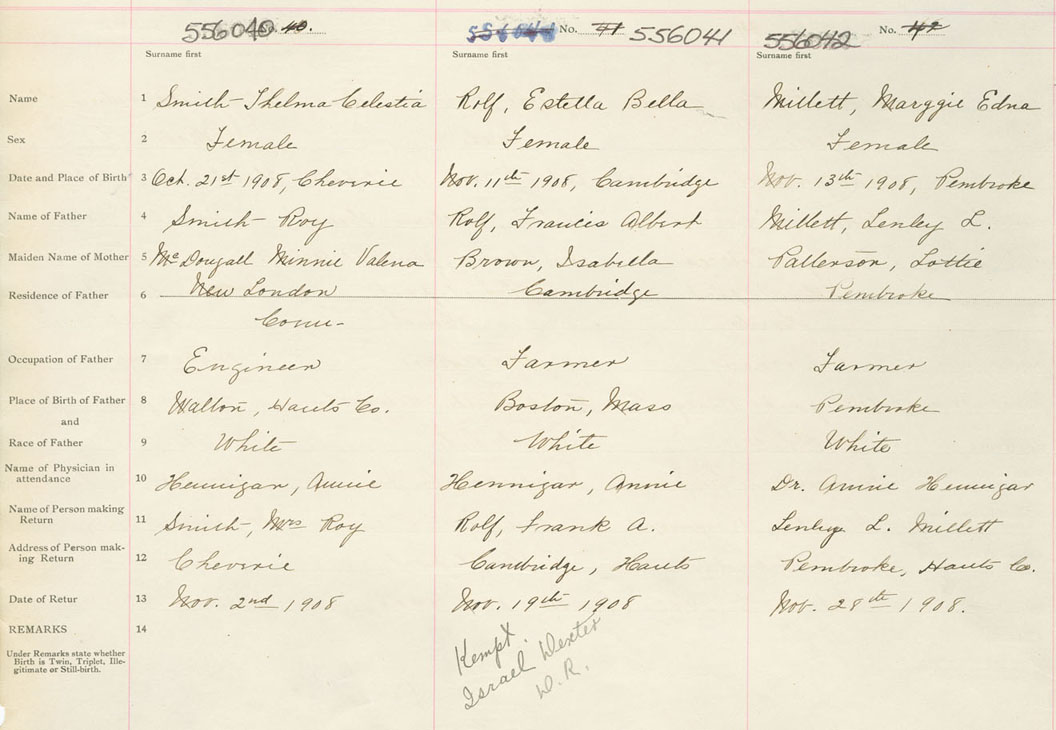 556040 No. 40. 556041 No. 41 556041 556042 No. 42
Surname first Surname first Surname first
Name 1 Smith Thelma Celestia Rolf, Estella Bella Millett, Marggie Edna
Sex 2 Female Female Female
Date and Place of Birth 3 Oct. 21st 1908, Cheverie Nov. 11th 1908, Cambridge Nov. 13th 1908, Pembroke
Name of Father 4 Smith Roy Rolf, Francis Albert Millett, Lenley L.
Maiden Name of Mother 5 McDougall Minnie Valena Brown, Isabella Patterson, Lottie
Residence of Father 6 New London Cambridge Pembroke
Conn-
Occupation of Father 7 Engineer Farmer Farmer
Place of Birth of Father 8 Walton, Hants Co. Boston, Mass Pembroke
and
Race of Father 9 White White White
Name of Physician in
attendance 10 Hennigar, Annie Hennigar, Annie Dr. Annie Hennigar
Name of Person making
Return 11 Smith, Mrs Roy Rolf, Frank A. Lenley L. Millett
Address of Person mak-
ing Return 12 Cheverie Cambridge, Hants Pembroke, Hants Co.
Date of Retur 13 Nov. 2nd 1908 Nov. 19th 1908 Nov. 28th 1908.
REMARKS 14
Under Remarks state whether
Birth is Twin, Triplet, Ille-
gitimate or Still-birth.
Kempt.
Israel Dexter
D.R.